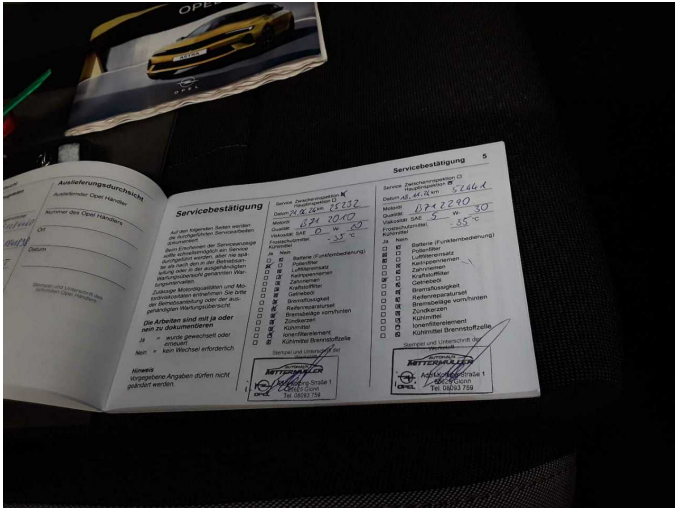 OPEL
ASTRA
OPEL
Auslieferungsdurchsicht
Ausliefernder Opel Händler
Nummer des Opel Händlers
Ort
Datum
Stempel und Unterschrift des
Servicebestätigung
Auf den folgenden Seiten werden
die durchgeführten Servicearbeiten
dokumentiert.
Beim Erscheinen der Serviceanzeige
sollte schnellstmöglich ein Service
durchgeführt werden, aber nie spä-
ter als nach den in der Betriebsan-
leitung oder in der ausgehändigten
Wartungsübersicht genannten War-
tungsintervallen.
Zulässige Motorölqualitäten und Mo-
torölviskositäten entnehmen Sie bitte
der Betriebsanleitung oder der aus-
gehändigten Wartungsübersicht.
Die Arbeiten sind mit ja oder
nein zu dokumentieren
Ja = wurde gewechselt oder
erneuert
Nein = kein Wechsel erforderlich
Hinweis
Vorgegebene Angaben dürfen nicht
geändert werden.
Service Zwischeninspektion
Hauptinspektion
Datum 24.06.24 km 25232
Motoröl
Qualität B71 2010
Viskosität SAE 0 W-
Frostschutzmittel
Kühlmittel -35 °C
Ja Nein
Batterie (Funkfernbedienung)
Pollenfilter
Luftfiltereinsatz
Keilrippenriemen
Zahnriemen
Kraftstofffilter
Getriebeöl
Bremsflüssigkeit
Reifenreparaturset
Bremsbeläge vorn/hinten
Zündkerzen
Kühlmittel
Ionenfilterelement
Kühlmittel Brennstoffzelle
Stempel und Unterschrift der
Werkstatt
AUTOHAUS
MITTERMÜLLER
OPEL
Straße 1
Glonn
Tel. 08093 759
Servicebestätigung 5
Service Zwischeninspektion
Hauptinspektion
Datum km
Motoröl
Qualität B71 2290
Viskosität SAE 5 W- 30
Frostschutzmittel
Kühlmittel -35 °C
Ja Nein
Batterie (Funkfernbedienung)
Pollenfilter
Luftfiltereinsatz
Keilrippenriemen
Zahnriemen
Kraftstofffilter
Getriebeöl
Bremsflüssigkeit
Reifenreparaturset
Bremsbeläge vorn/hinten
Zündkerzen
Kühlmittel
Ionenfilterelement
Kühlmittel Brennstoffzelle
Stempel und Unterschrift der
Werkstatt
AUTOHAUS
MITTERMÜLLER
OPEL
Straße 1
Glonn
Tel. 08093 759